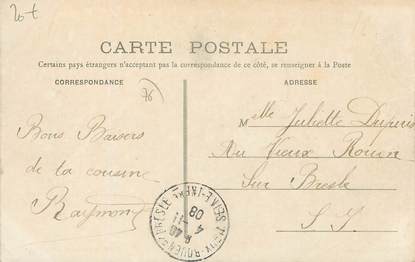 20 t
CARTE POSTALE
Certains pays étrangers n'acceptant pas la correspondance de ce côté, se renseigner à la Poste
CORRESPONDANCE
ADRESSE
76
Bons Baisers
de la cousine
Raymond
Mlle Juliette Dupuis
Au Vieux Rouen
Sur Bresle
S I
VIEUX-ROUEN-S-BRESLE SEINE-INFRE
8 40
4 - 11
08